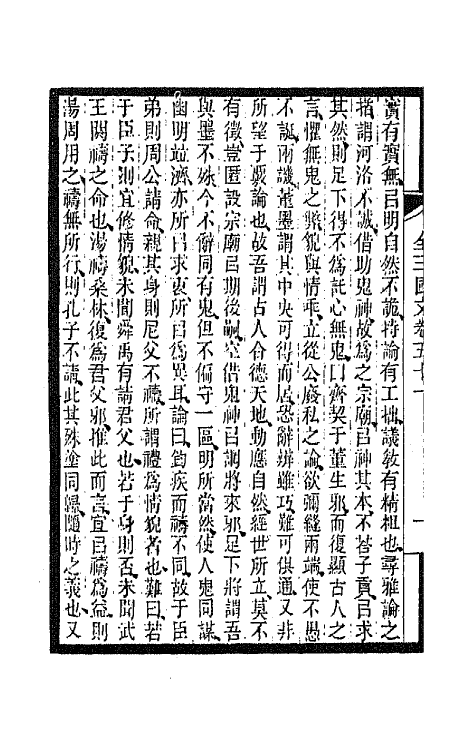 全三國文卷五十
實有實無㠯明自然不詭持論有工拙議敎有精粗也尋雅論之
指謂河洛不誠借助鬼神故爲之宗廟㠯神其本不荅子貢㠯求
其然則足下得不爲託心無鬼囗齊契于董生邪而復顯古人之
言懼無鬼之獘貌與情乖立從公廢私之論欲彌縫兩端使不愚
不誕兩譏董墨謂其中央可得而居恐辭辨雖巧難可俱通又非
所望于覈論也故吾謂古人合德天地動應自然經世所立莫不
有徵豈匿設宗廟㠯期後嗣空借鬼神㠯誷將來邪足下將謂吾
與墨不殊今不辭同有鬼但不偏守一區明所當然使人鬼同謀
幽明竝濟亦所㠯求衷所㠯爲異耳論曰鈞疾而禱不同故于臣
弟則周公請命親其身則尼父不禱所謂禮爲情貌者也難曰若
于臣子則宜修情貌未聞舜禹有請君父也若于身則否未聞武
王閼禱之命也湯禱桑林復爲君父邪推此而言宜㠯禱爲益則
湯周用之禱無所行則孔子不請此其殊塗同歸隨時之義也又